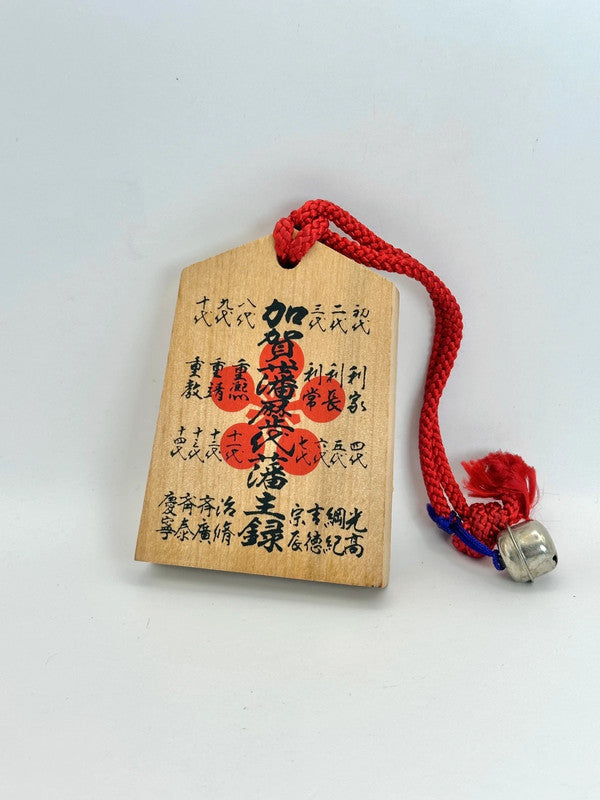 加賀藩歴代藩主録
初代 利家
二代 利長
三代 利常
四代 光高
五代 綱紀
六代 吉徳
七代 宗辰
八代 重熙
九代 重靖
十代 重教
十一代 治脩
十二代 斉廣
十三代 斉泰
十四代 慶寧